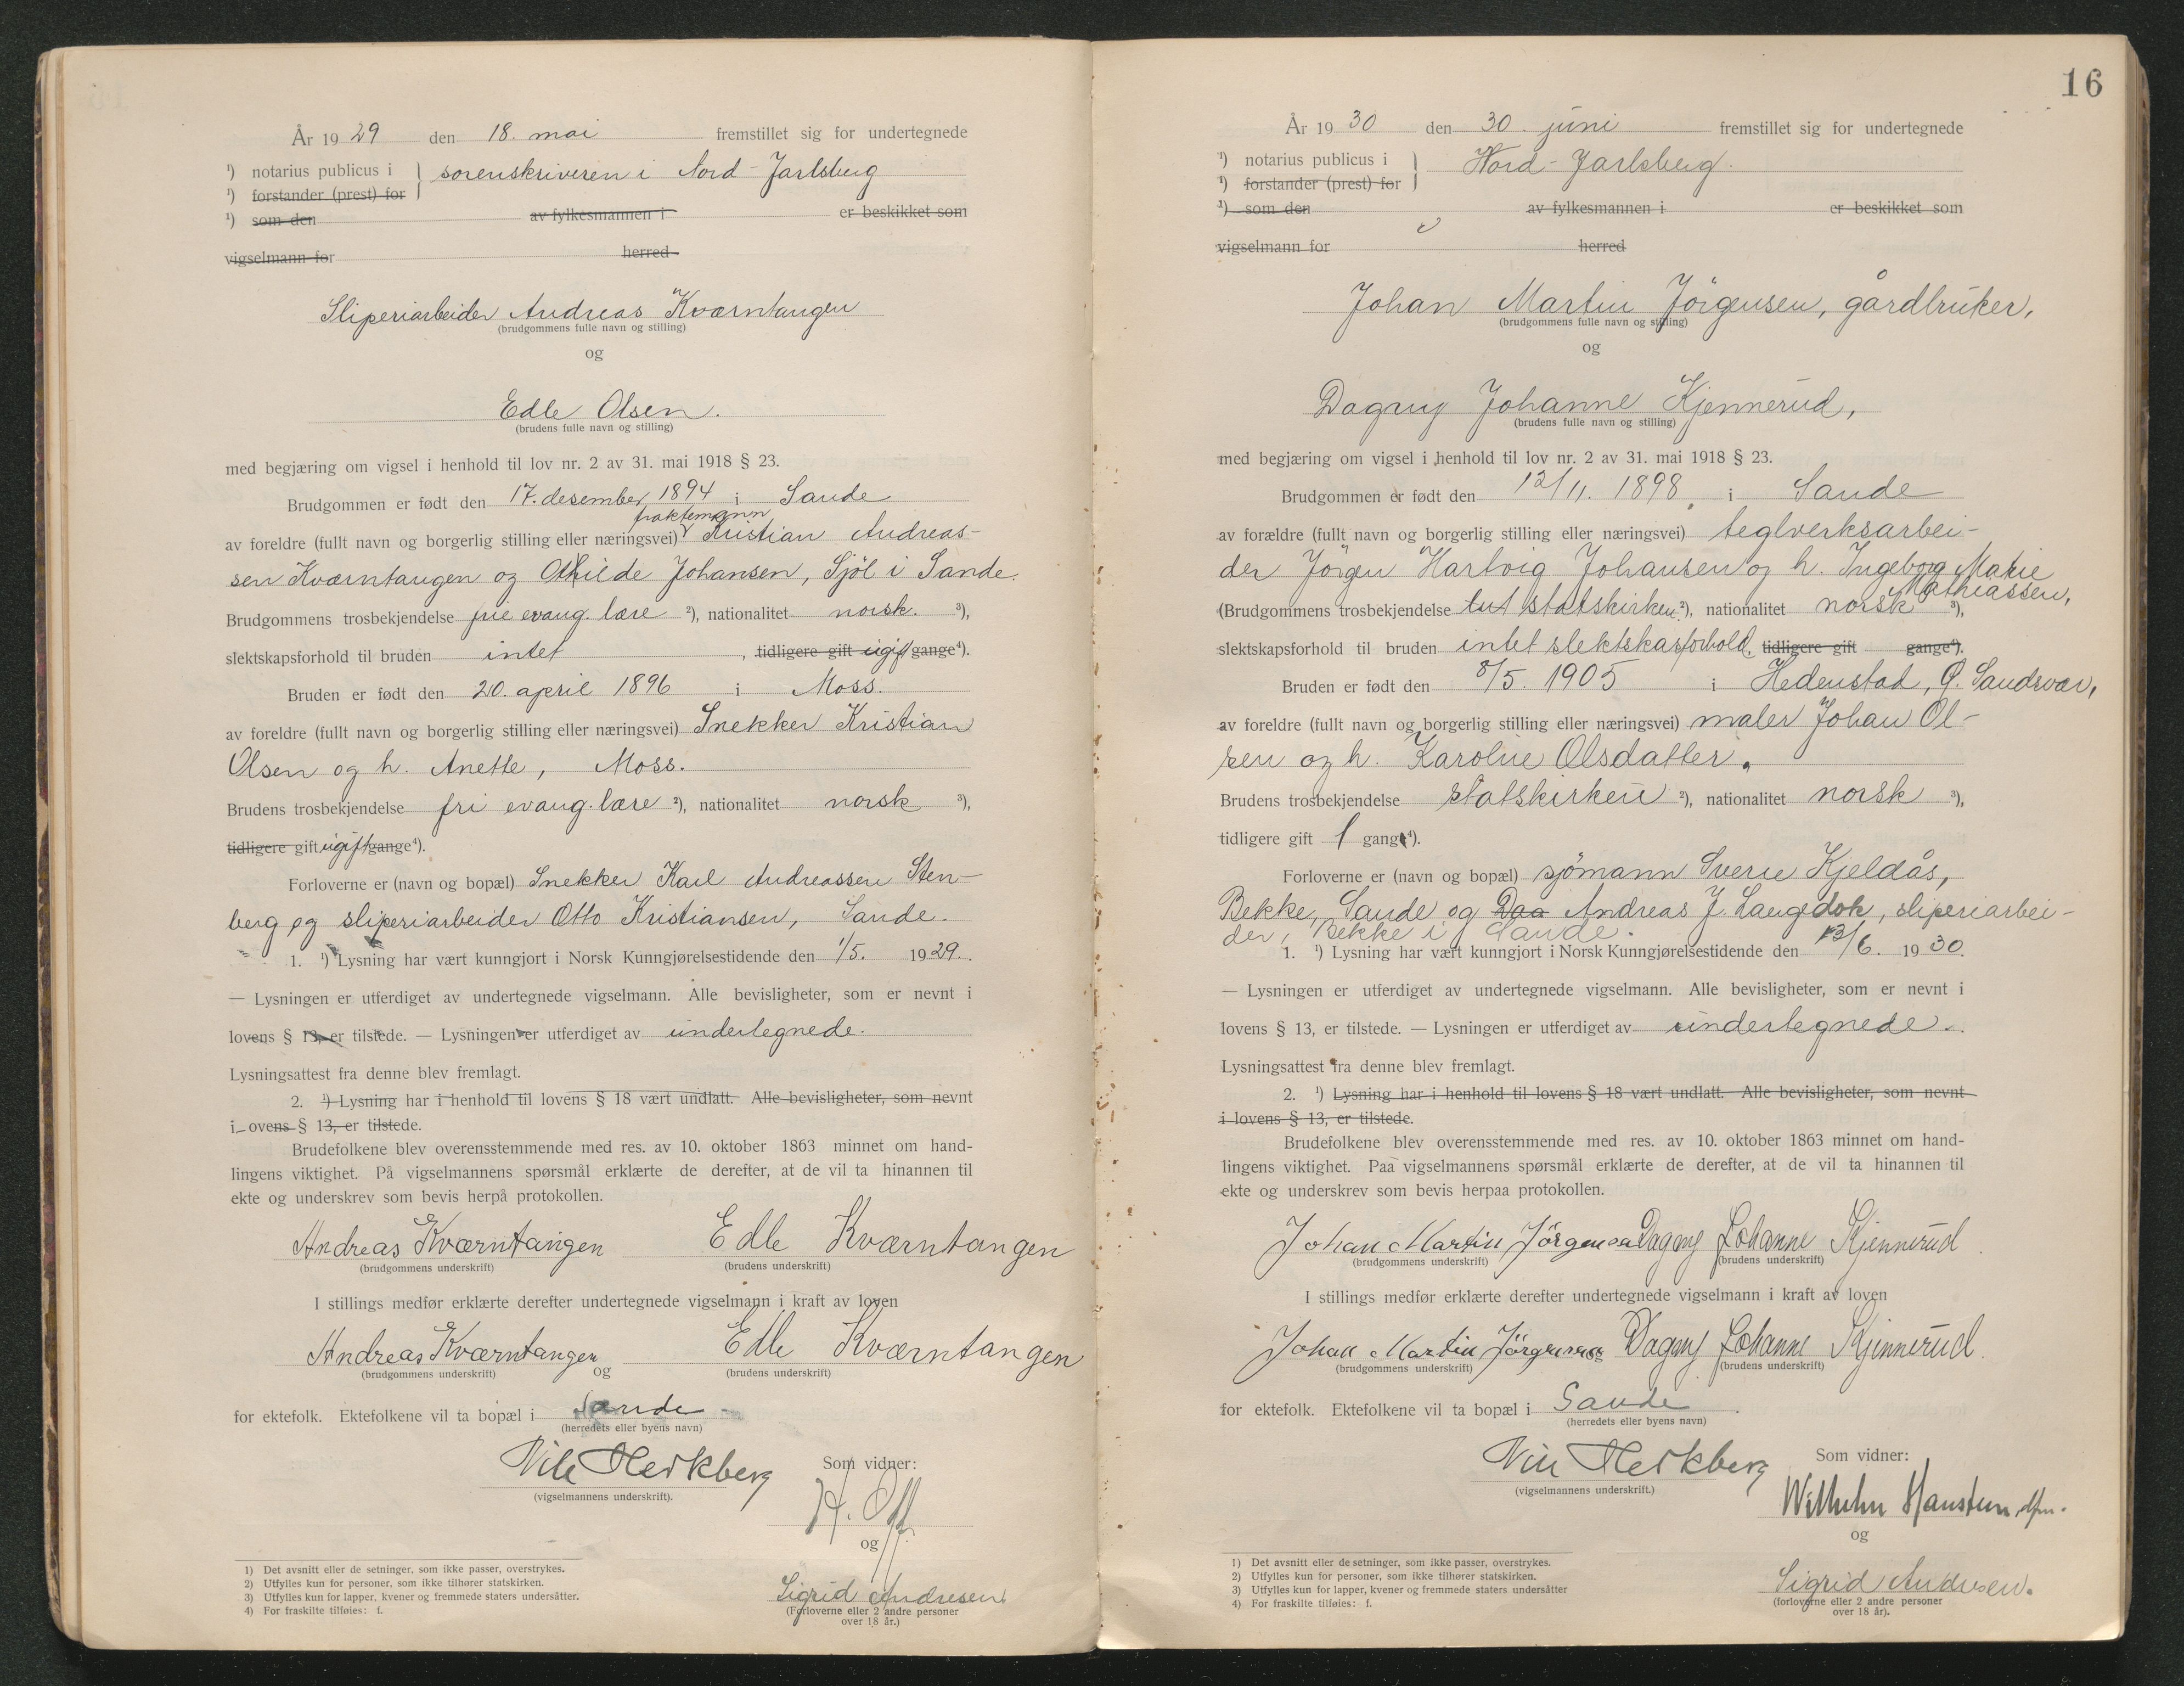 År 1929 den 18. mai fremstillet sig for undertegnede
¹) notarius publicus i } sorenskriveren i Nord-Jarlsberg
¹) forstander (prest) for
¹) som den av fylkesmannen i er beskikket som
vigselmann for herred
Sliperiarbeider Andreas Kværntangen
(brudgommens fulle navn og stilling)
og
Edle Olsen.
(brudens fulle navn og stilling)
med begjæring om vigsel i henhold til lov nr. 2 av 31. mai 1918 § 23.
Brudgommen er født den 17. desember 1894 i Sande
fraktemann
av foreldre (fullt navn og borgerlig stilling eller næringsvei) Kristian Andreas-
sen Kværntangen og Othilde Johansen, Sjøl i Sande.
Brudgommens trosbekjendelse frie evang. lære ²), nationalitet norsk. ³),
slektskapsforhold til bruden intet, tidligere gift ugift gange⁴).
Bruden er født den 20. april 1896 i Moss.
av foreldre (fullt navn og borgerlig stilling eller næringsvei) Snekker Kristian
Olsen og h. Anette, Moss.
Brudens trosbekjendelse fri evang. lære ²), nationalitet norsk ³),
tidligere gift ugift gange⁴).
Forloverne er (navn og bopæl) Snekker Karl Andreassen Sten-
berg og sliperiarbeider Otto Kristiansen, Sande.
1. ¹) Lysning har vært kunngjort i Norsk Kunngjørelsestidende den 1/5. 1929.
— Lysningen er utferdiget av undertegnede vigselmann. Alle bevisligheter, som er nevnt i
lovens § 13, er tilstede. — Lysningen er utferdiget av undertegnede.
Lysningsattest fra denne blev fremlagt.
2. ¹) Lysning har i henhold til lovens § 18 vært undlatt. Alle bevisligheter, som nevnt
i ovens § 13, er tilstede.
Brudefolkene blev overensstemmende med res. av 10. oktober 1863 minnet om hand-
lingens viktighet. På vigselmannens spørsmål erklærte de derefter, at de vil ta hinannen til
ekte og underskrev som bevis herpå protokollen.
Andreas Kværntangen Edle Kværntangen
(brudgommens underskrift) (brudens underskrift)
I stillings medfør erklærte derefter undertegnede vigselmann i kraft av loven
Andreas Kværntangen og Edle Kværntangen
(brudgommens underskrift) (brudens underskrift)
for ektefolk. Ektefolkene vil ta bopæl i Sande
(herredets eller byens navn)
Nils Herkberg Som vidner:
(vigselmannens underskrift).
og
Sigrid Andresen
(Forloverne eller 2 andre personer
over 18 år.)
1) Det avsnitt eller de setninger, som ikke passer, overstrykes.
2) Utfylles kun for personer, som ikke tilhører statskirken.
3) Utfylles kun for lapper, kvener og fremmede staters undersåtter.
4) For fraskilte tilføies: f.
16
År 1930 den 30. juni fremstillet sig for undertegnede
¹) notarius publicus i } Nord-Jarlsberg.
¹) forstander (prest) for
¹) som den av fylkesmannen i er beskikket som
vigselmann for herred
Johan Martin Jörgensen, gårdbruker,
(brudgommens fulle navn og stilling)
og
Dagny Johanne Kjennerud,
(brudens fulle navn og stilling)
med begjæring om vigsel i henhold til lov nr. 2 av 31. mai 1918 § 23.
Brudgommen er født den 12/11. 1898 i Sande
av forældre (fullt navn og borgerlig stilling eller næringsvei) teglverksarbei-
der Jörgen Hartvig Johansen og h. Ingeborg Marie
Mathiassen,
(Brudgommens trosbekjendelse lut statskirken ²), nationalitet norsk ³),
slektskapsforhold til bruden intet slektskasforhold, tidligere gift gange⁴).
Bruden er født den 8/5. 1905 i Hedenstad, Ö. Sandsvær,
av foreldre (fullt navn og borgerlig stilling eller næringsvei) maler Johan Ol-
sen og h. Karoline Olsdatter.
Brudens trosbekjendelse statskirken ²), nationalitet norsk ³),
tidligere gift 1 gang⁴).
Forloverne er (navn og bopæl) sjömann Sverre Kjeldås,
Bekke, Sande og Daa Andreas J. Langedok, sliperiarbei-
der, Bekke i Sande.
1. ¹) Lysning har vært kunngjort i Norsk Kunngjørelsestidende den 13/6. 1930.
— Lysningen er utferdiget av undertegnede vigselmann. Alle bevisligheter, som er nevnt i
lovens § 13, er tilstede. — Lysningen er utferdiget av undertegnede.
Lysningsattest fra denne blev fremlagt.
2. ¹) Lysning har i henhold til lovens § 18 vært undlatt. Alle bevisligheter, som nevnt
i lovens § 13, er tilstede.
Brudefolkene blev overensstemmende med res. av 10. oktober 1863 minnet om hand-
lingens viktighet. Paa vigselmannens spørsmål erklærte de derefter, at de vil ta hinannen til
ekte og underskrev som bevis herpaa protokollen.
Johan Martin Jörgensen Dagny Johanne Kjennerud
(brudgommens underskrift) (brudens underskrift)
I stillings medfør erklærte derefter undertegnede vigselmann i kraft av loven
Johan Martin Jörgensen og Dagny Johanne Kjennerud
(brudgommens underskrift) (brudens underskrift)
for ektefolk. Ektefolkene vil ta bopæl i Sande
(herredets eller byens navn)
Nils Herkberg Som vidner:
(vigselmannens underskrift.)
Wilhelm Hansteen
og
Sigrid Andresen.
(forloverne eller 2 andre personer
over 18 år).
1) Det avsnitt eller de setninger, som ikke passer, overstrykes.
2) Utfylles kun for personer, som ikke tilhører statskirken.
3) Utfylles kun for lapper, kvener og fremmede staters undersåtter
4) For fraskilte tilføies: f.